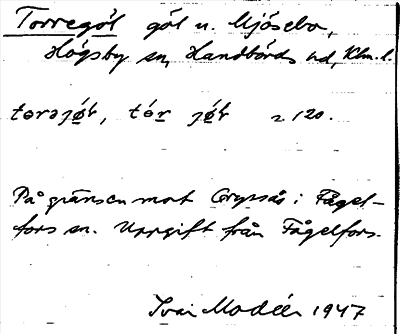 Torregöl göl n. Mjösebo,
Högsby sn, Handbörds hd, Klm. l.
torəjø̀l, tór jø̀l 120.
På gränsen mot Grypsås i Fågel-
fors sn. Uppgift från Fågelfors.
Ivar Modéer 1947